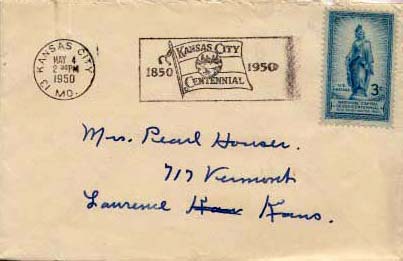 KANSAS CITY
MAY 4
2 PM
1950
13 MO.
KANSAS CITY
1850 1950
CENTENNIAL
3¢
NATIONAL CAPITAL
SESQUICENTENNIAL
Mrs. Pearl Houser.
717 Vermont
Laurence Kans.